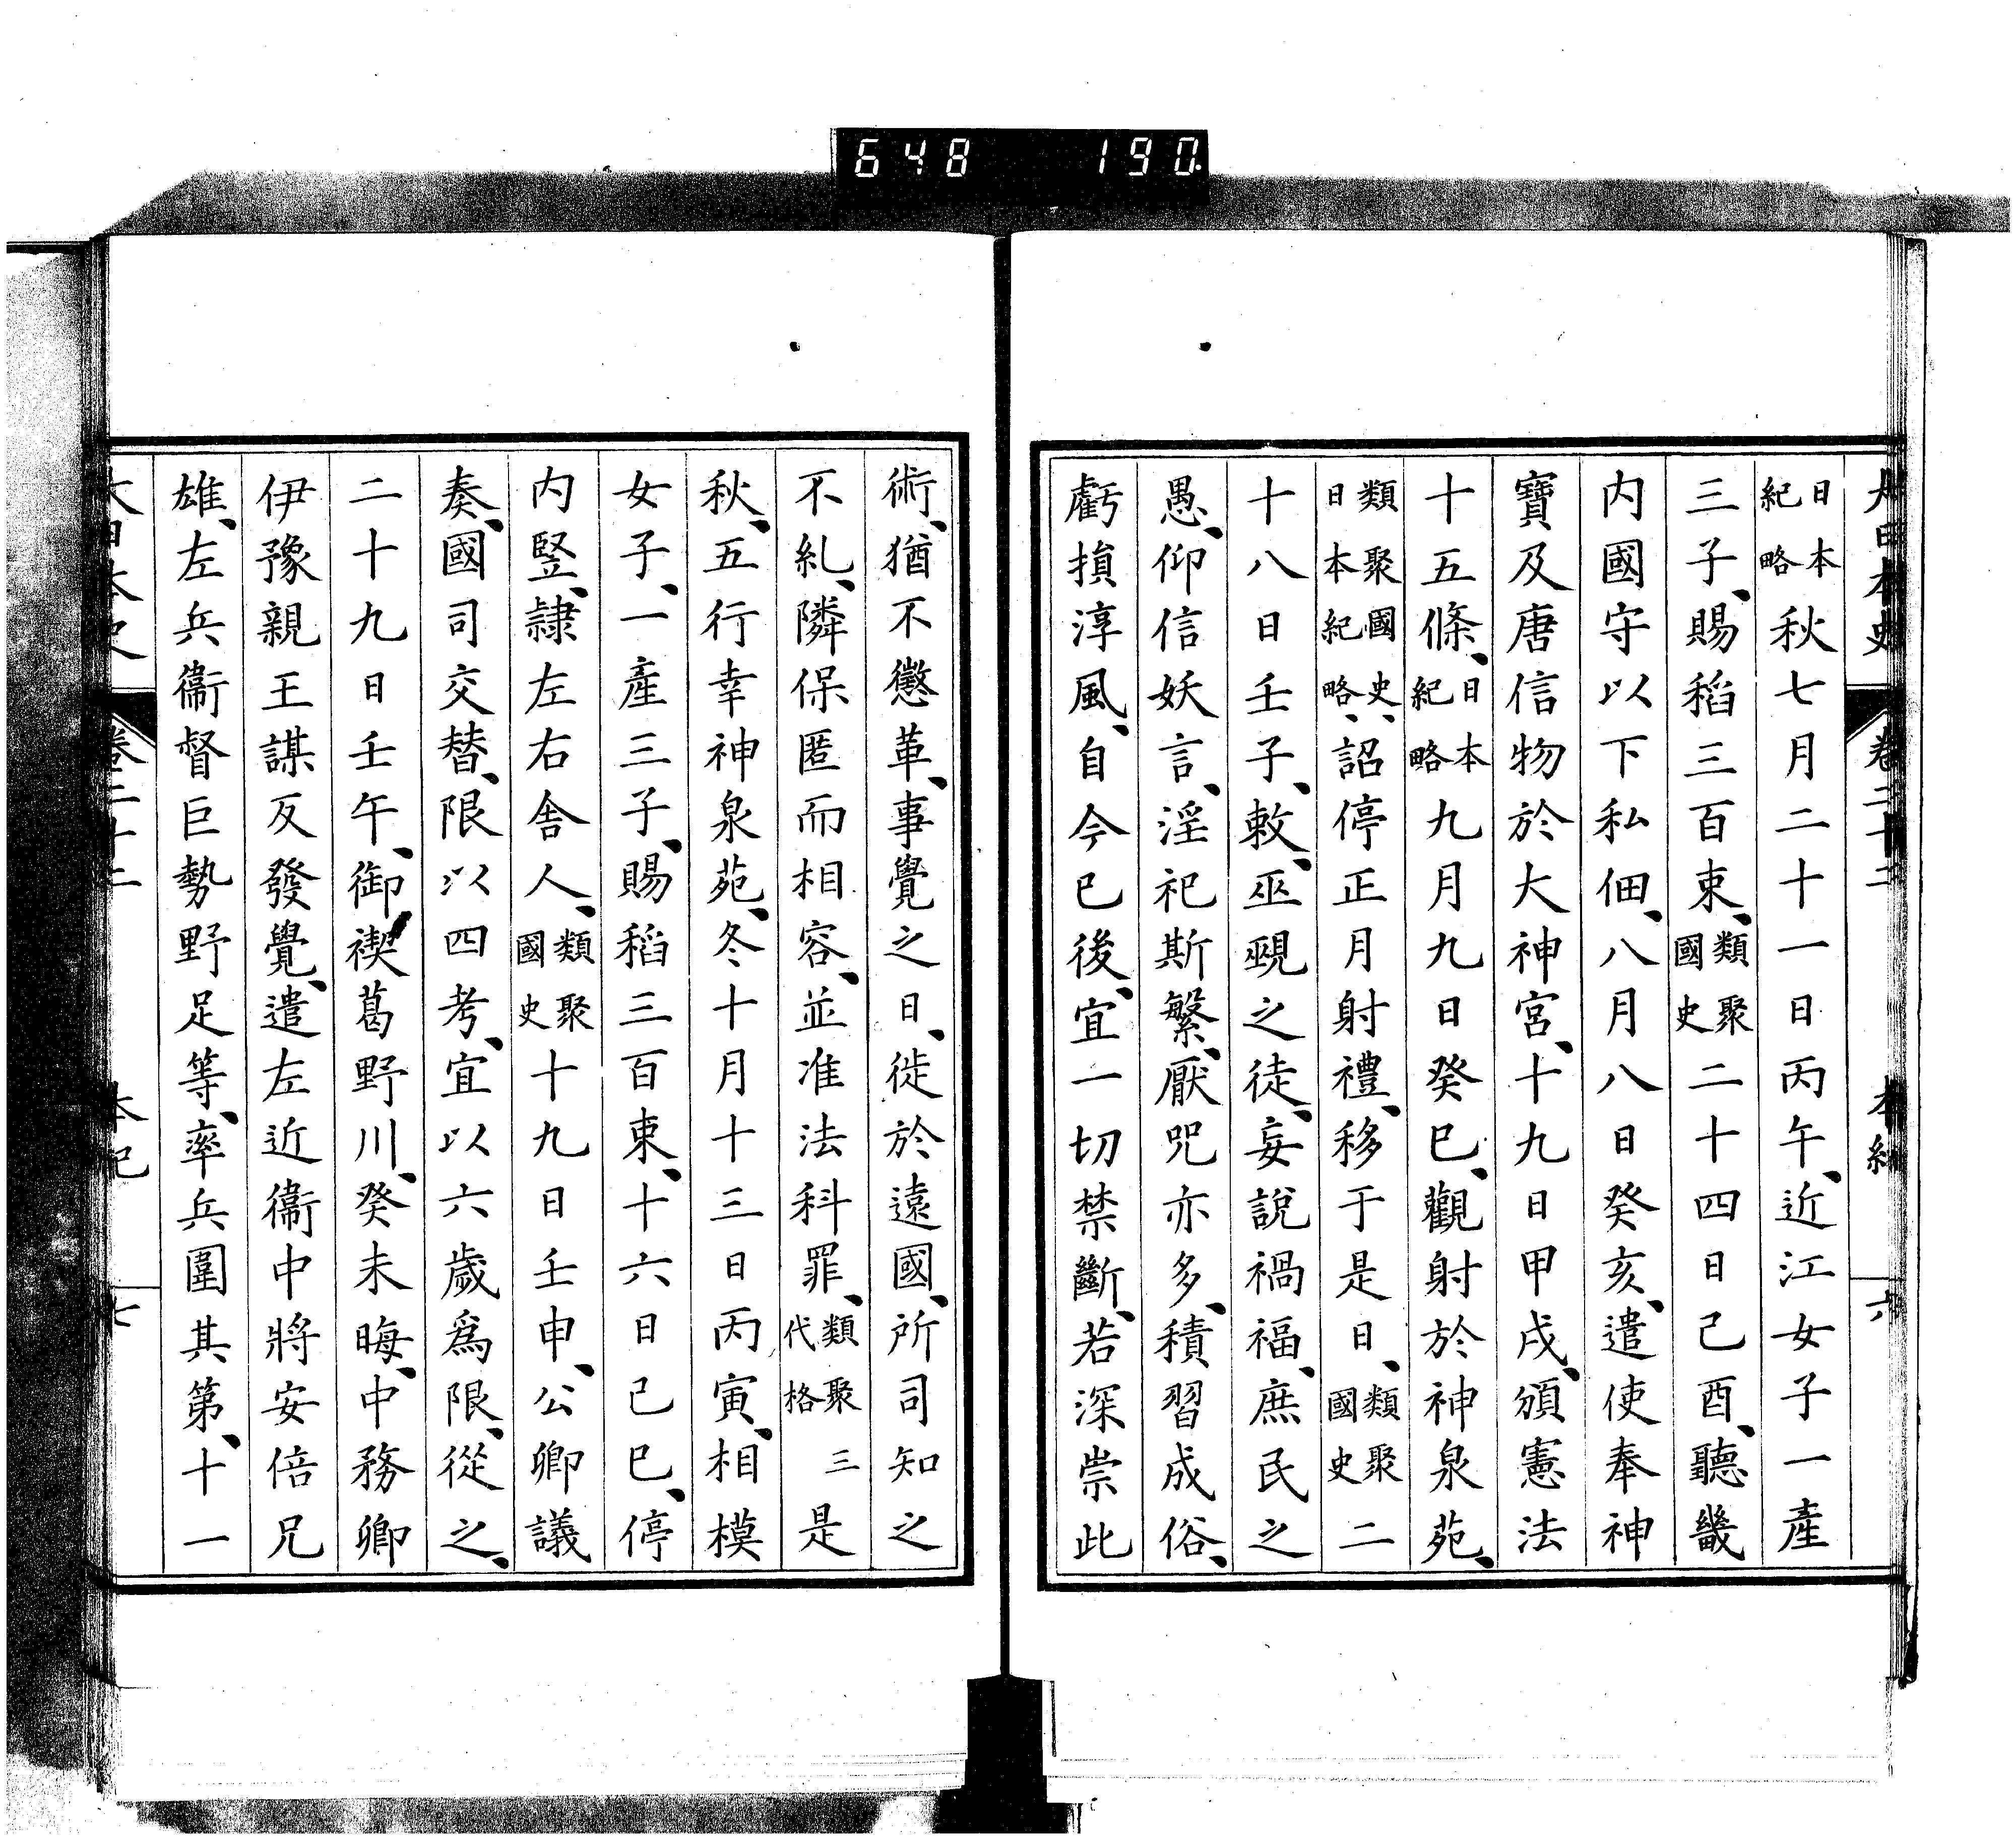 648 190
大日本史 卷二十二 本紀 六
日本紀略秋七月二十一日丙午、近江女子一產
三子、賜稻三百束、類聚國史二十四日己酉、聽畿
内國守以下私佃、八月八日癸亥、遣使奉神
寶及唐信物於大神宮、十九日甲戌、頒憲法
十五條、日本紀略九月九日癸巳、觀射於神泉苑、
類聚國史、日本紀略、詔停正月射禮、移于是日、類聚國史二
十八日壬子、敕、巫覡之徒、妄說禍福、庶民之
愚、仰信妖言、淫祀斯繁、厭咒亦多、積習成俗、
虧損淳風、自今已後、宜一切禁斷、若深崇此
術、猶不懲革、事覺之日、徙於遠國、所司知之
不糺、隣保匿而相容、並准法科罪、類聚三代格是
秋、五行幸神泉苑、冬十月十三日丙寅、相模
女子、一產三子、賜稻三百束、十六日己巳、停
内竪、隷左右舎人、類聚國史十九日壬申、公卿議
奏、國司交替、限以四考、宜以六歲爲限、從之、
二十九日壬午、御禊葛野川、癸未晦、中務卿
伊豫親王謀反發覺、遣左近衞中將安倍兄
雄、左兵衞督巨勢野足等、率兵圍其第、十一
大日本史 卷二十二 本紀 七